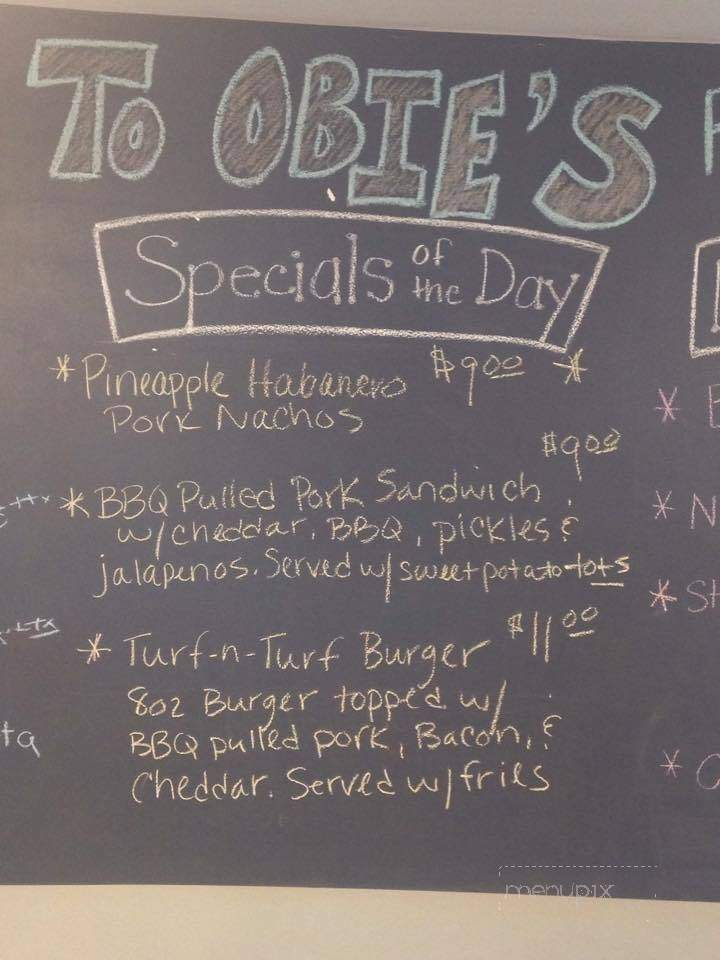 To OBIE'S
Specials of the Day
* Pineapple Habanero $9.00 *
Pork Nachos
$9.00
* BBQ Pulled Pork Sandwich
w/cheddar, BBQ, pickles &
jalapenos. Served w/ sweet potato tots
* Turf-n-Turf Burger $11.00
8oz Burger topped w/
BBQ pulled pork, Bacon, &
Cheddar. Served w/fries
ta
* N
* St
* C
menupix